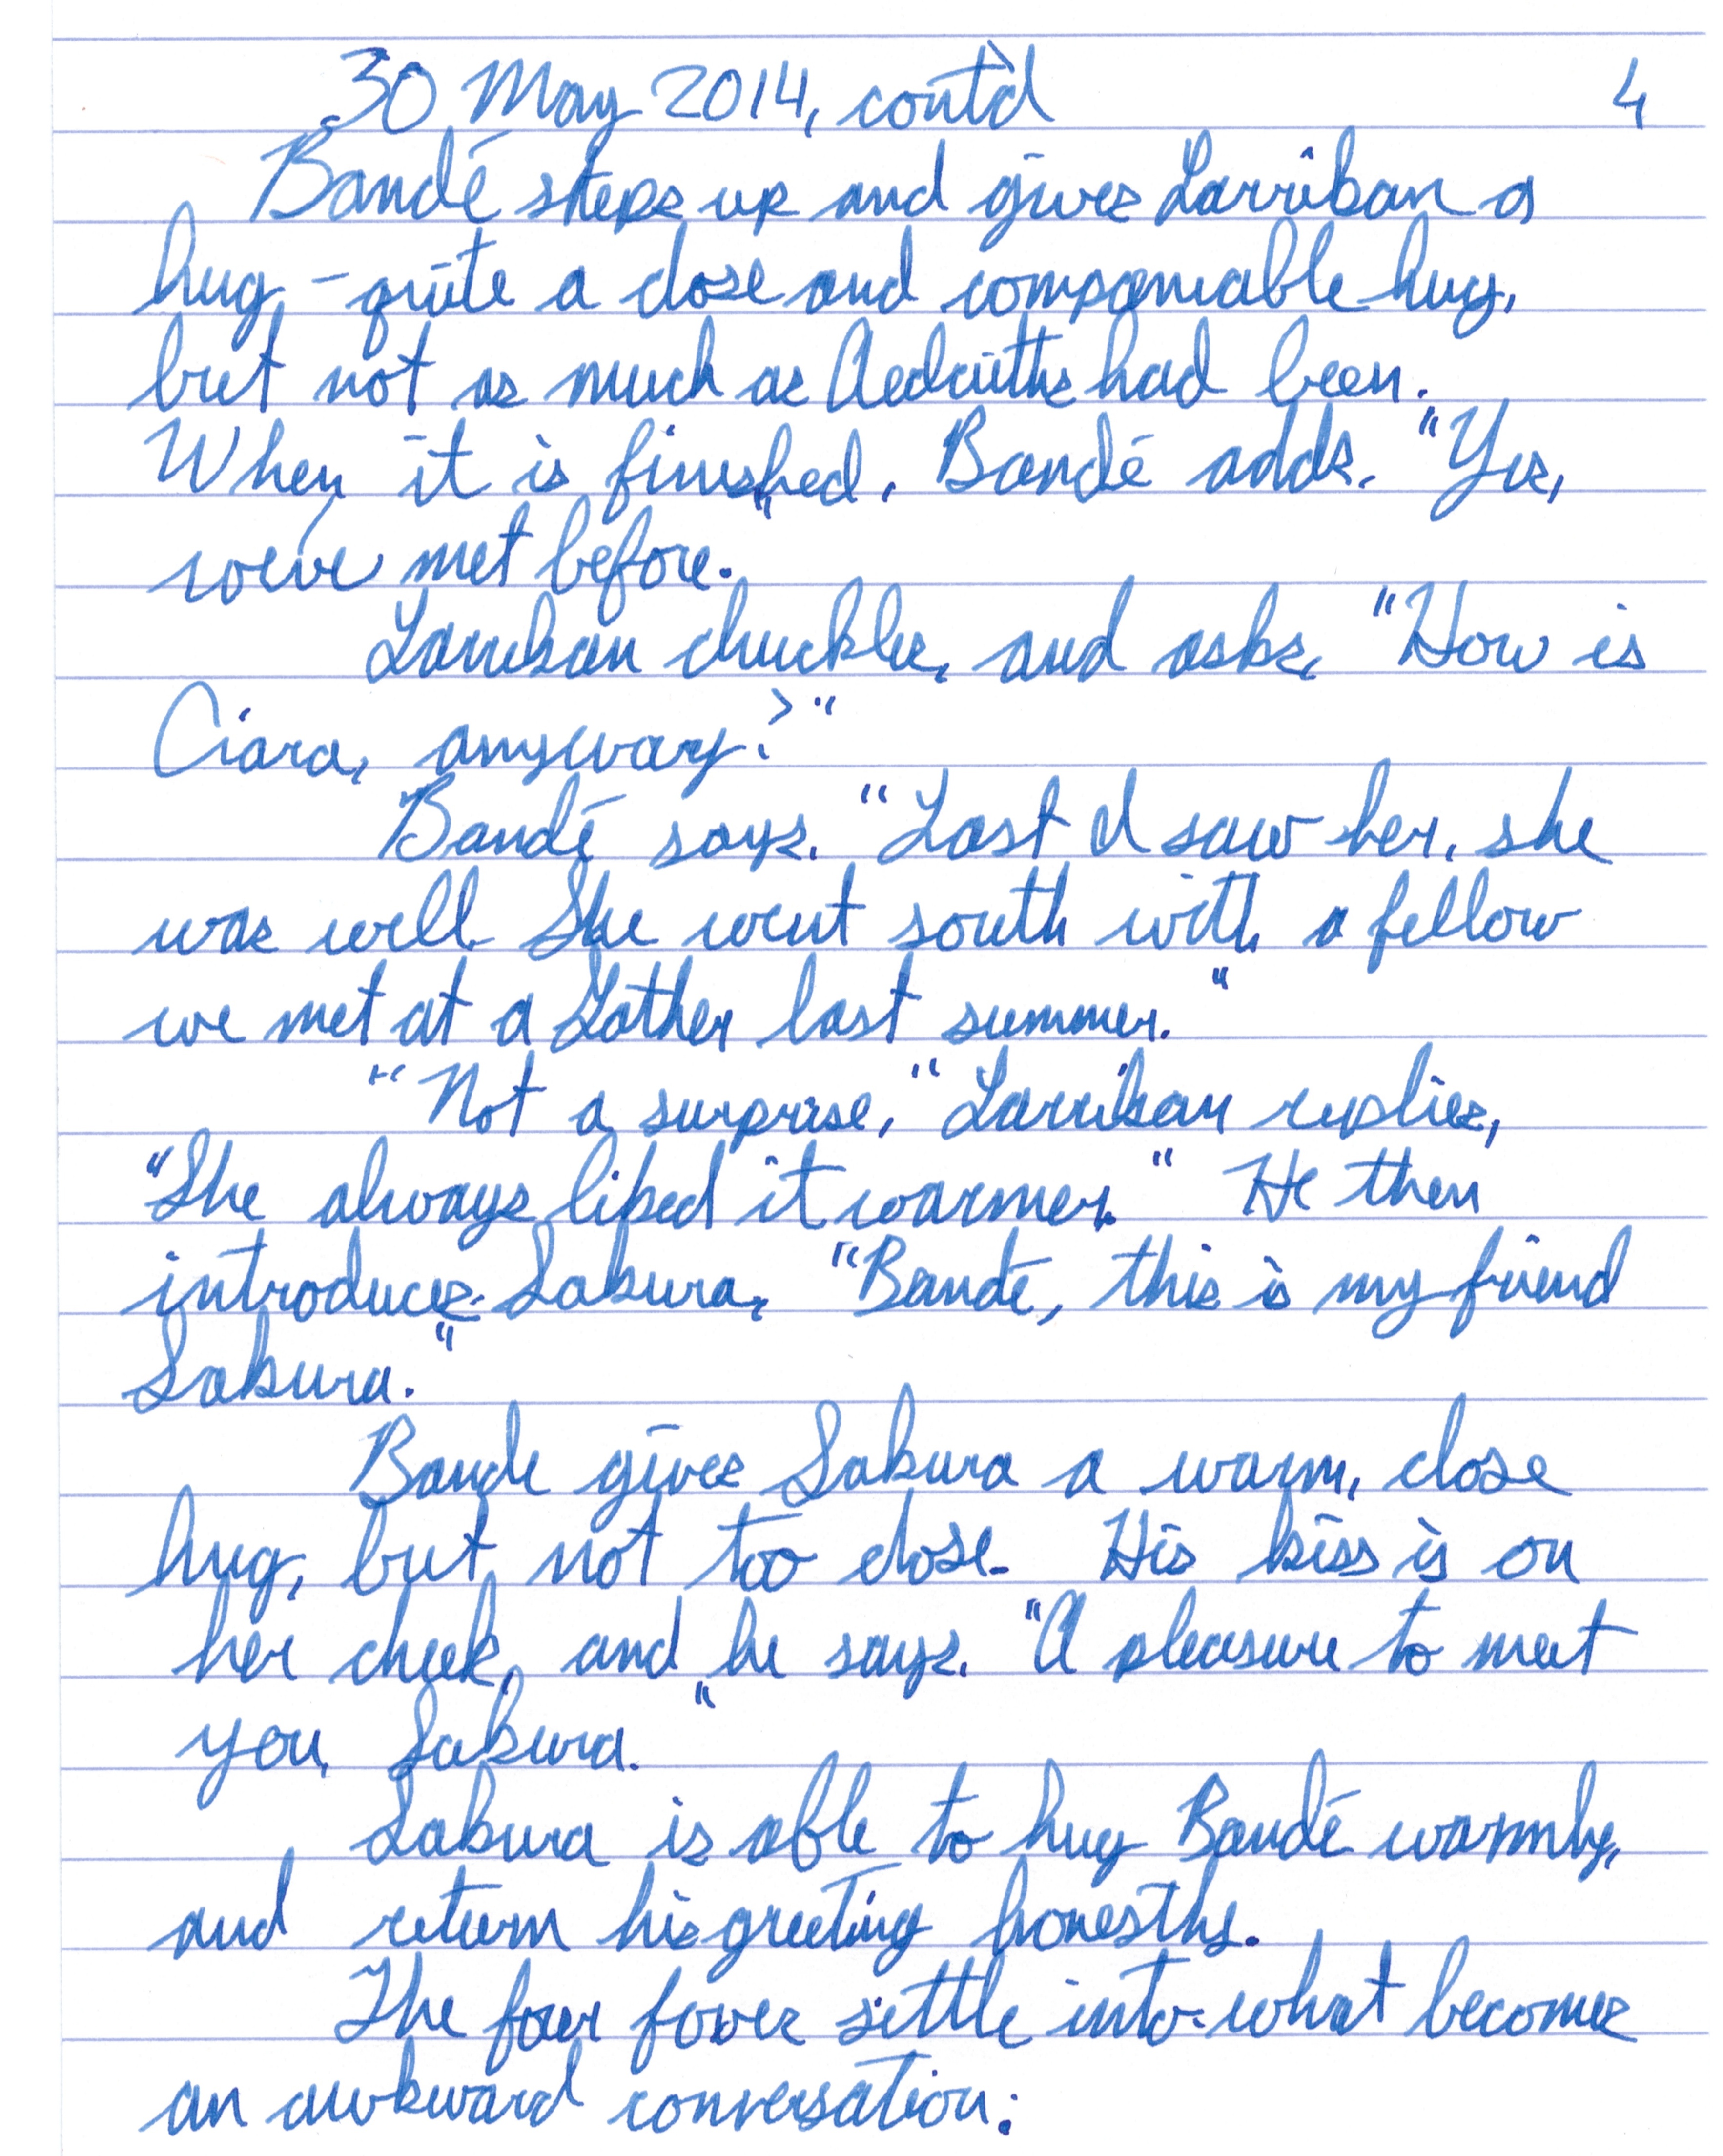 30 May 2014, cont'd 4
Bandé steps up and gives Larriban a
hug – quite a close and companiable hug,
but not as much as had been.
When it is finished, Bandé adds, "Yes,
we've met before."
Larriban chuckles, and asks, "How is
Ciara, anyway?"
Bandé says, "Last I saw her, she
was well. She went south with a fellow
we met at a Gather last summer."
"Not a surprise," Larriban replies,
"She always liked it warmer." He then
introduces Sakura, "Bandé, this is my friend
Sakura."
Bande gives Sakura a warm, close
hug, but not too close. His kiss is on
her cheek, and he says, "A pleasure to meet
you, Sakura."
Sakura is able to hug Bandé warmly,
and return his greeting honestly.
The four settle into what becomes
an awkward conversation: